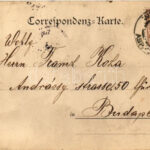 Correspondenz-Karte.
Wohlg
Herrn Franz Koha
Andrássy strasse 50
in
Budapest